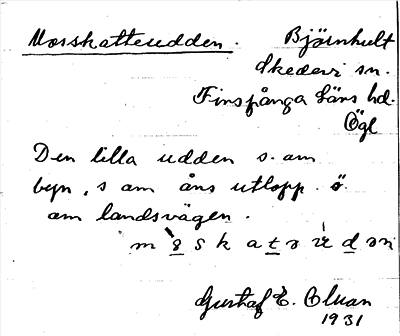 Mosskatteudden. Björnhult
Skedevi sn.
Finspånga läns hd.
Ögl
Den lilla udden s. om
byn, s om åns utlopp. ö.
om landsvägen.
Gustaf E. Olsson
1931